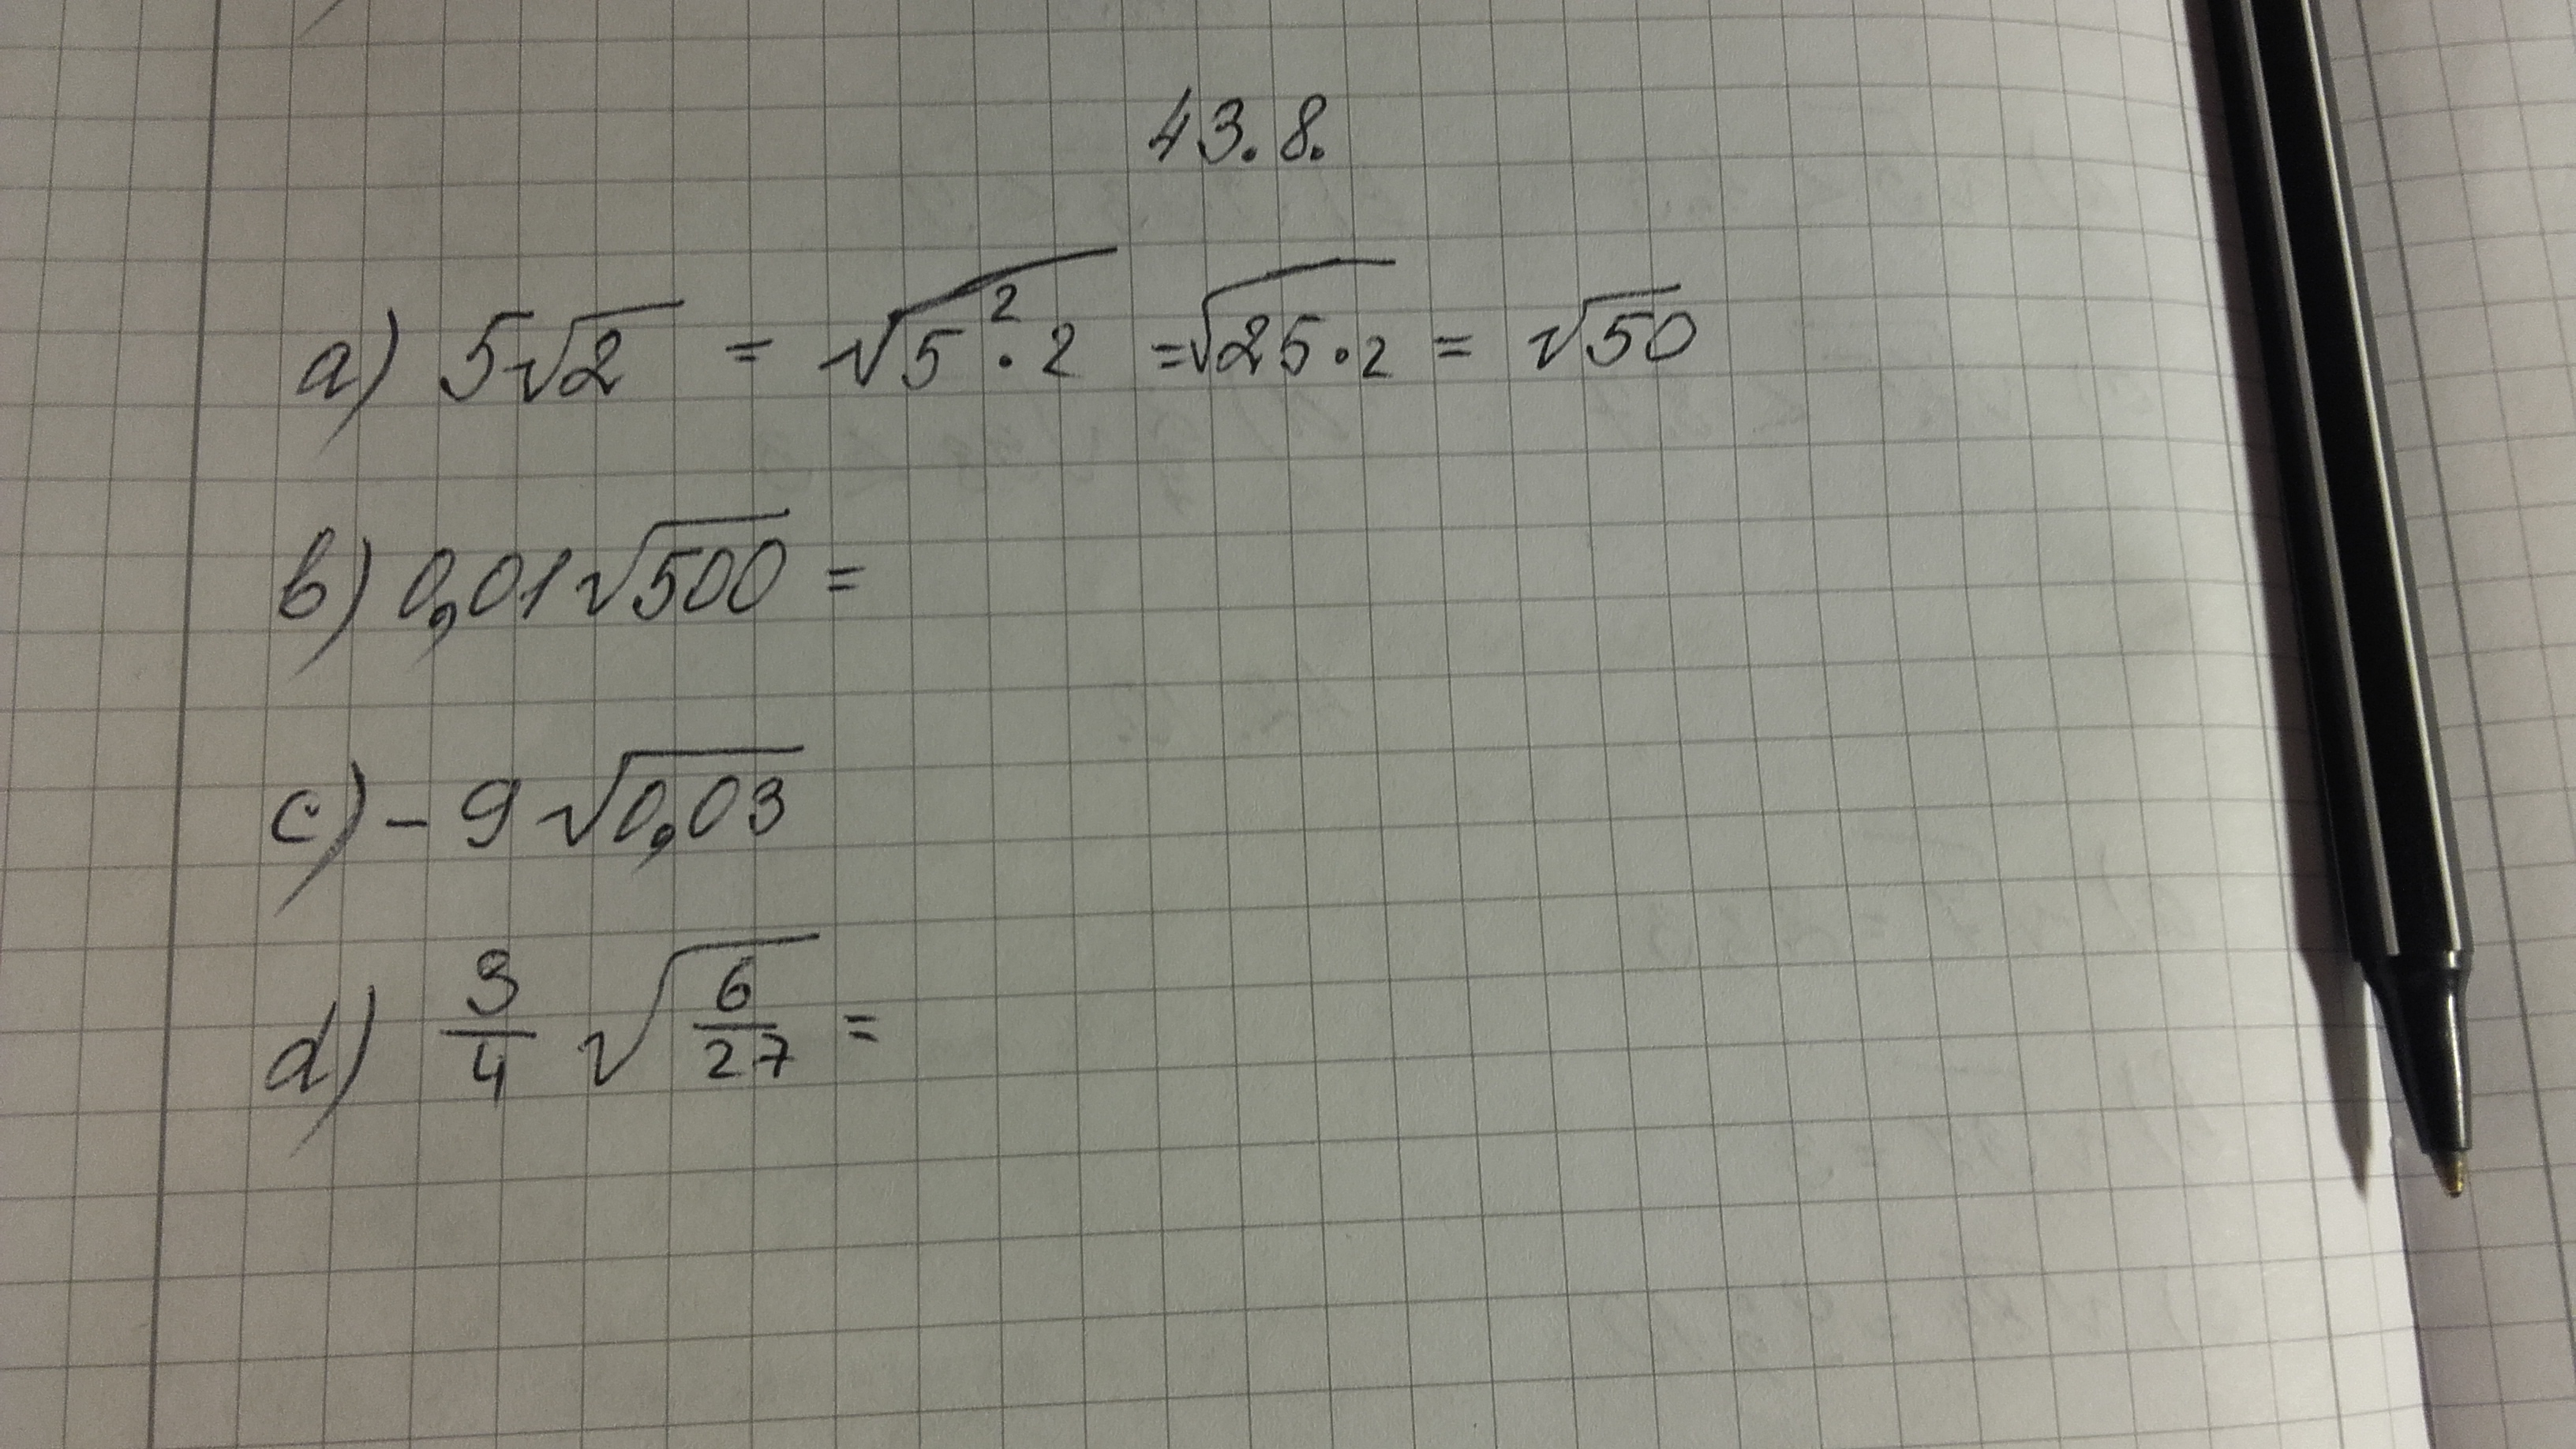 43.8.
a) 5√2 = √5² · 2 = √25 · 2 = √50
b) 0,01√500 =
c) - 9√0,03
d) 3/4 √6/27 =